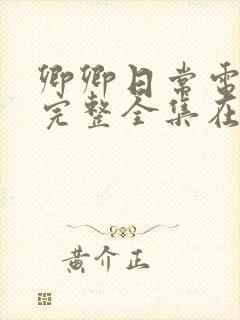 卿卿日常电
完整全集在
黄介正